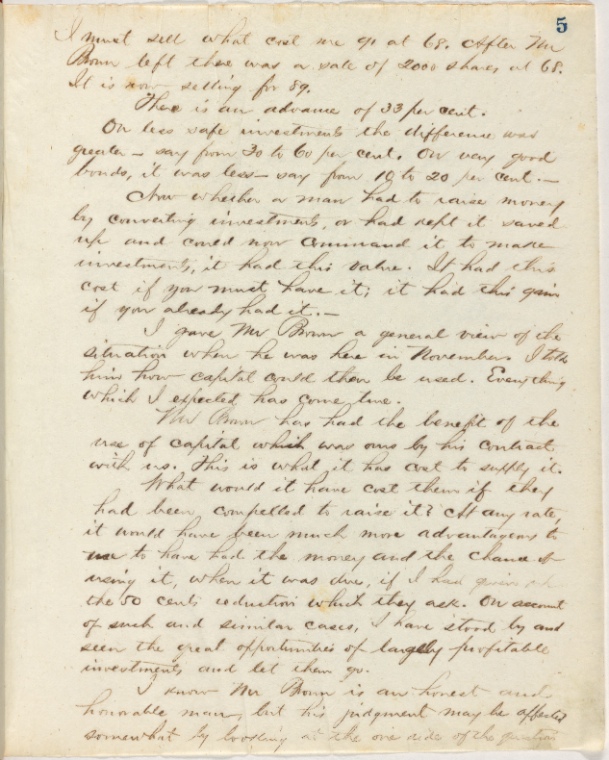 5
I must sell what cost me 90 at 68. After Mr
Brown left there was a sale of 2000 shares at 68.
It is now selling for 89.
There is an advance of 33 per cent.
On less safe investments the difference was
greater — say from 30 to 60 per cent. On very good
bonds, it was less — say from 10 to 20 per cent. —
Now whether a man had to raise money
by converting investments, or had kept it saved
up and could now command it to make
investments, it had this value. It had this
cost if you must have it; it had this gain
if you already had it. —
I gave Mr Brown a general view of the
situation when he was here in November. I told
him how capital could then be used. Everything
which I expected has come true.
Mr Brown has had the benefit of the
use of capital which was ours by his contract
with us. This is what it has cost to supply it.
What would it have cost them if they
had been compelled to raise it? At any rate,
it would have been much more advantageous to
to have had the money and the chance of
using it, when it was due, if I had given
the 50 cents reduction which they ask. On account
of such and similar cases, I have stood by and
seen the great opportunities of largely profitable
investments and let them go.
I know Mr Brown is an honest and
honorable man, but his judgment may be affected
somewhat by looking at the one side of the question